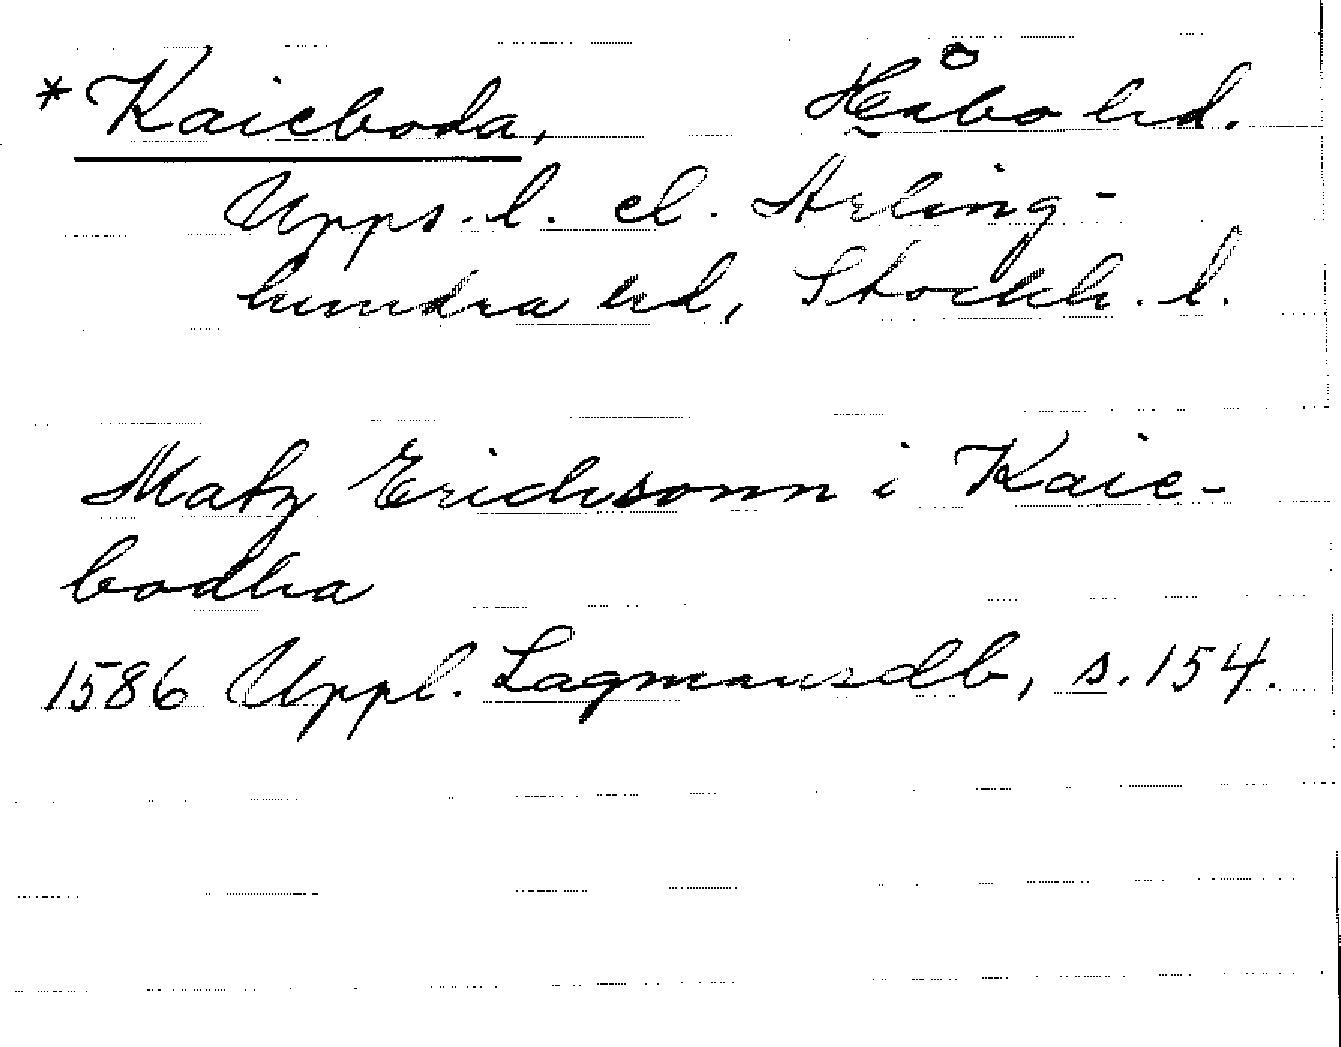 *Kaieboda, Håbo hd.
Upps. l. el. Ärling-
hundra hd, Stockh. l.
Matz Erichsonn i Kaie-
bodha
1586 Uppl. Lagmansdb, s. 154.